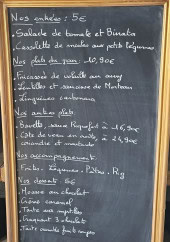 Nos entrées : 5€
- Salade de tomate et Burrata
- Cassolette de moules aux petits légumes
Nos plats du jour : 10,90€
- Fricassée de volaille au curry
- Lentilles et saucisse de Morteau
- Linguines carbonara
Nos autres plats
- Bavette, sauce Roquefort à 16,90€
- Côte de veau en à 24,90€
coriandre et moutarde
Nos accompagnements
- Frites, Légumes, Pâtes, Riz
Nos desserts 6€
- Mousse au chocolat
- Crème caramel
- Tarte aux myrtilles
- Craquant 3 chocolats
- Tarte